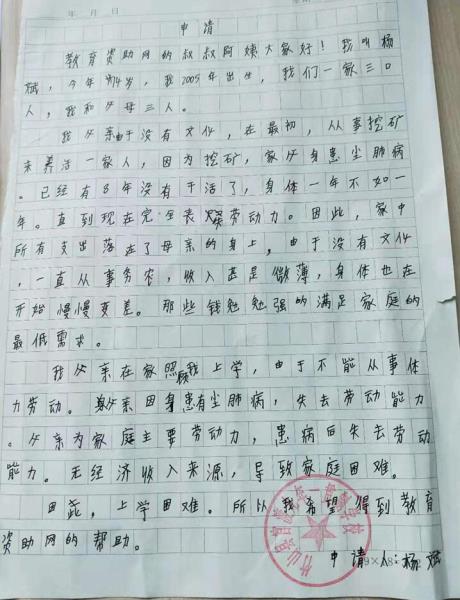 年 月 日
申请
教育资助网的叔叔阿姨大家好！我叫杨
斌，今年14岁，我2005年出生，我们一家三口
人，我和父母三人。
我父亲由于没有文化，在最初，从事挖矿
来养活一家人，因为挖矿，家父身患尘肺病
。已经有8年没有干活了，身体一年不如一
年。直到现在完全丧失劳动力。因此，家中
所有支出落在了母亲的身上，由于没有文化
，一直从事务农，收入甚是微薄，身体也在
开始慢慢变差。那些钱勉勉强强的满足家庭的
最低需求。
我父亲在家照顾我上学，由于不能从事体
力劳动。父亲因身患有尘肺病，失去劳动能力
。父亲为家庭主要劳动力，患病后失去劳动
能力。无经济收入来源，导致家庭困难。
因此，上学困难。所以我希望得到教育
资助网的帮助。
申请人：杨斌